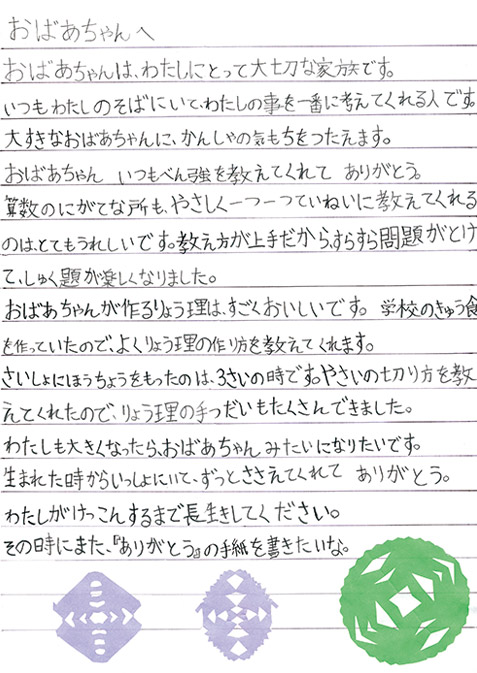 おばあちゃんへ
おばあちゃんは、わたしにとって大切な家族です。
いつもわたしのそばにいて、わたしの事を一番に考えてくれる人です。
大すきなおばあちゃんに、かんしゃの気もちをつたえます。
おばあちゃん いつもべん強を教えてくれて ありがとう。
算数のにがてな所も、やさしく一つ一つていねいに教えてくれる
のは、とてもうれしいです。教え方が上手だから、すらすら問題がとけ
て、しゅく題が楽しくなりました。
おばあちゃんが作るりょう理は、すごくおいしいです。 学校のきゅう食
を作っていたので、よくりょう理の作り方を教えてくれます。
さいしょにほうちょうをもったのは、3さいの時です。やさいの切り方を教
えてくれたので、りょう理の手つだいもたくさんできました。
わたしも大きくなったら、おばあちゃんみたいになりたいです。
生まれた時からいっしょにいて、ずっとささえてくれて ありがとう。
わたしがけっこんするまで長生きしてください。
その時にまた、『ありがとう』の手紙を書きたいな。